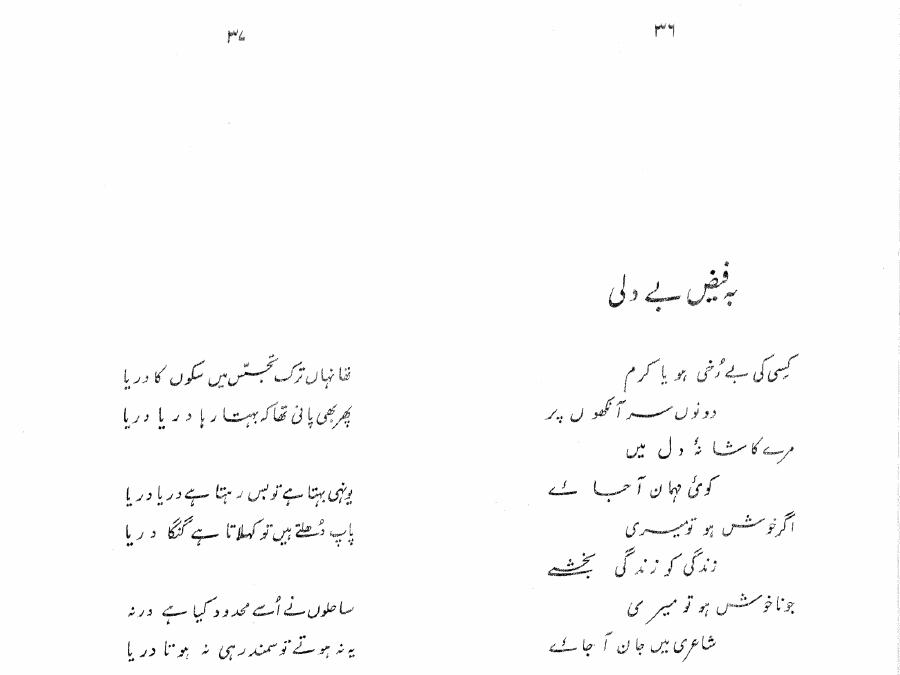 ۳۶
بہ فیض بے دلی
کسی کی بے رُخی ہو یا کرم
دونوں سر آنکھوں پر
مرے کاشانۂ دل میں
کوئی مہمان آ جائے
اگر خوش ہو تو میری
زندگی کو زندگی بخشے
جو ناخوش ہو تو میری
شاعری میں جان آ جائے
۳۷
تھا نہاں ترک تجسّس میں سکوں کا دریا
پھر بھی پانی تھا کہ بہتا رہا دریا دریا
یونہی بہتا ہے تو بس رہتا ہے دریا دریا
پاپ دُھلتے ہیں تو کہلاتا ہے گنگا دریا
ساحلوں نے اُسے محدود کیا ہے ورنہ
یہ نہ ہوتے تو سمندر ہی نہ ہوتا دریا